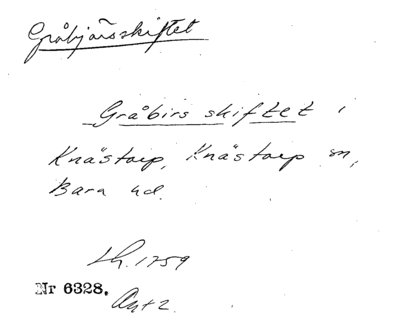 Gråbjörsskiftet
Gråbirs skiftet i
Knästorp, Knästorp sn,
Bara hd.
Lh. 1759
Nr 6328.
Akt 2.